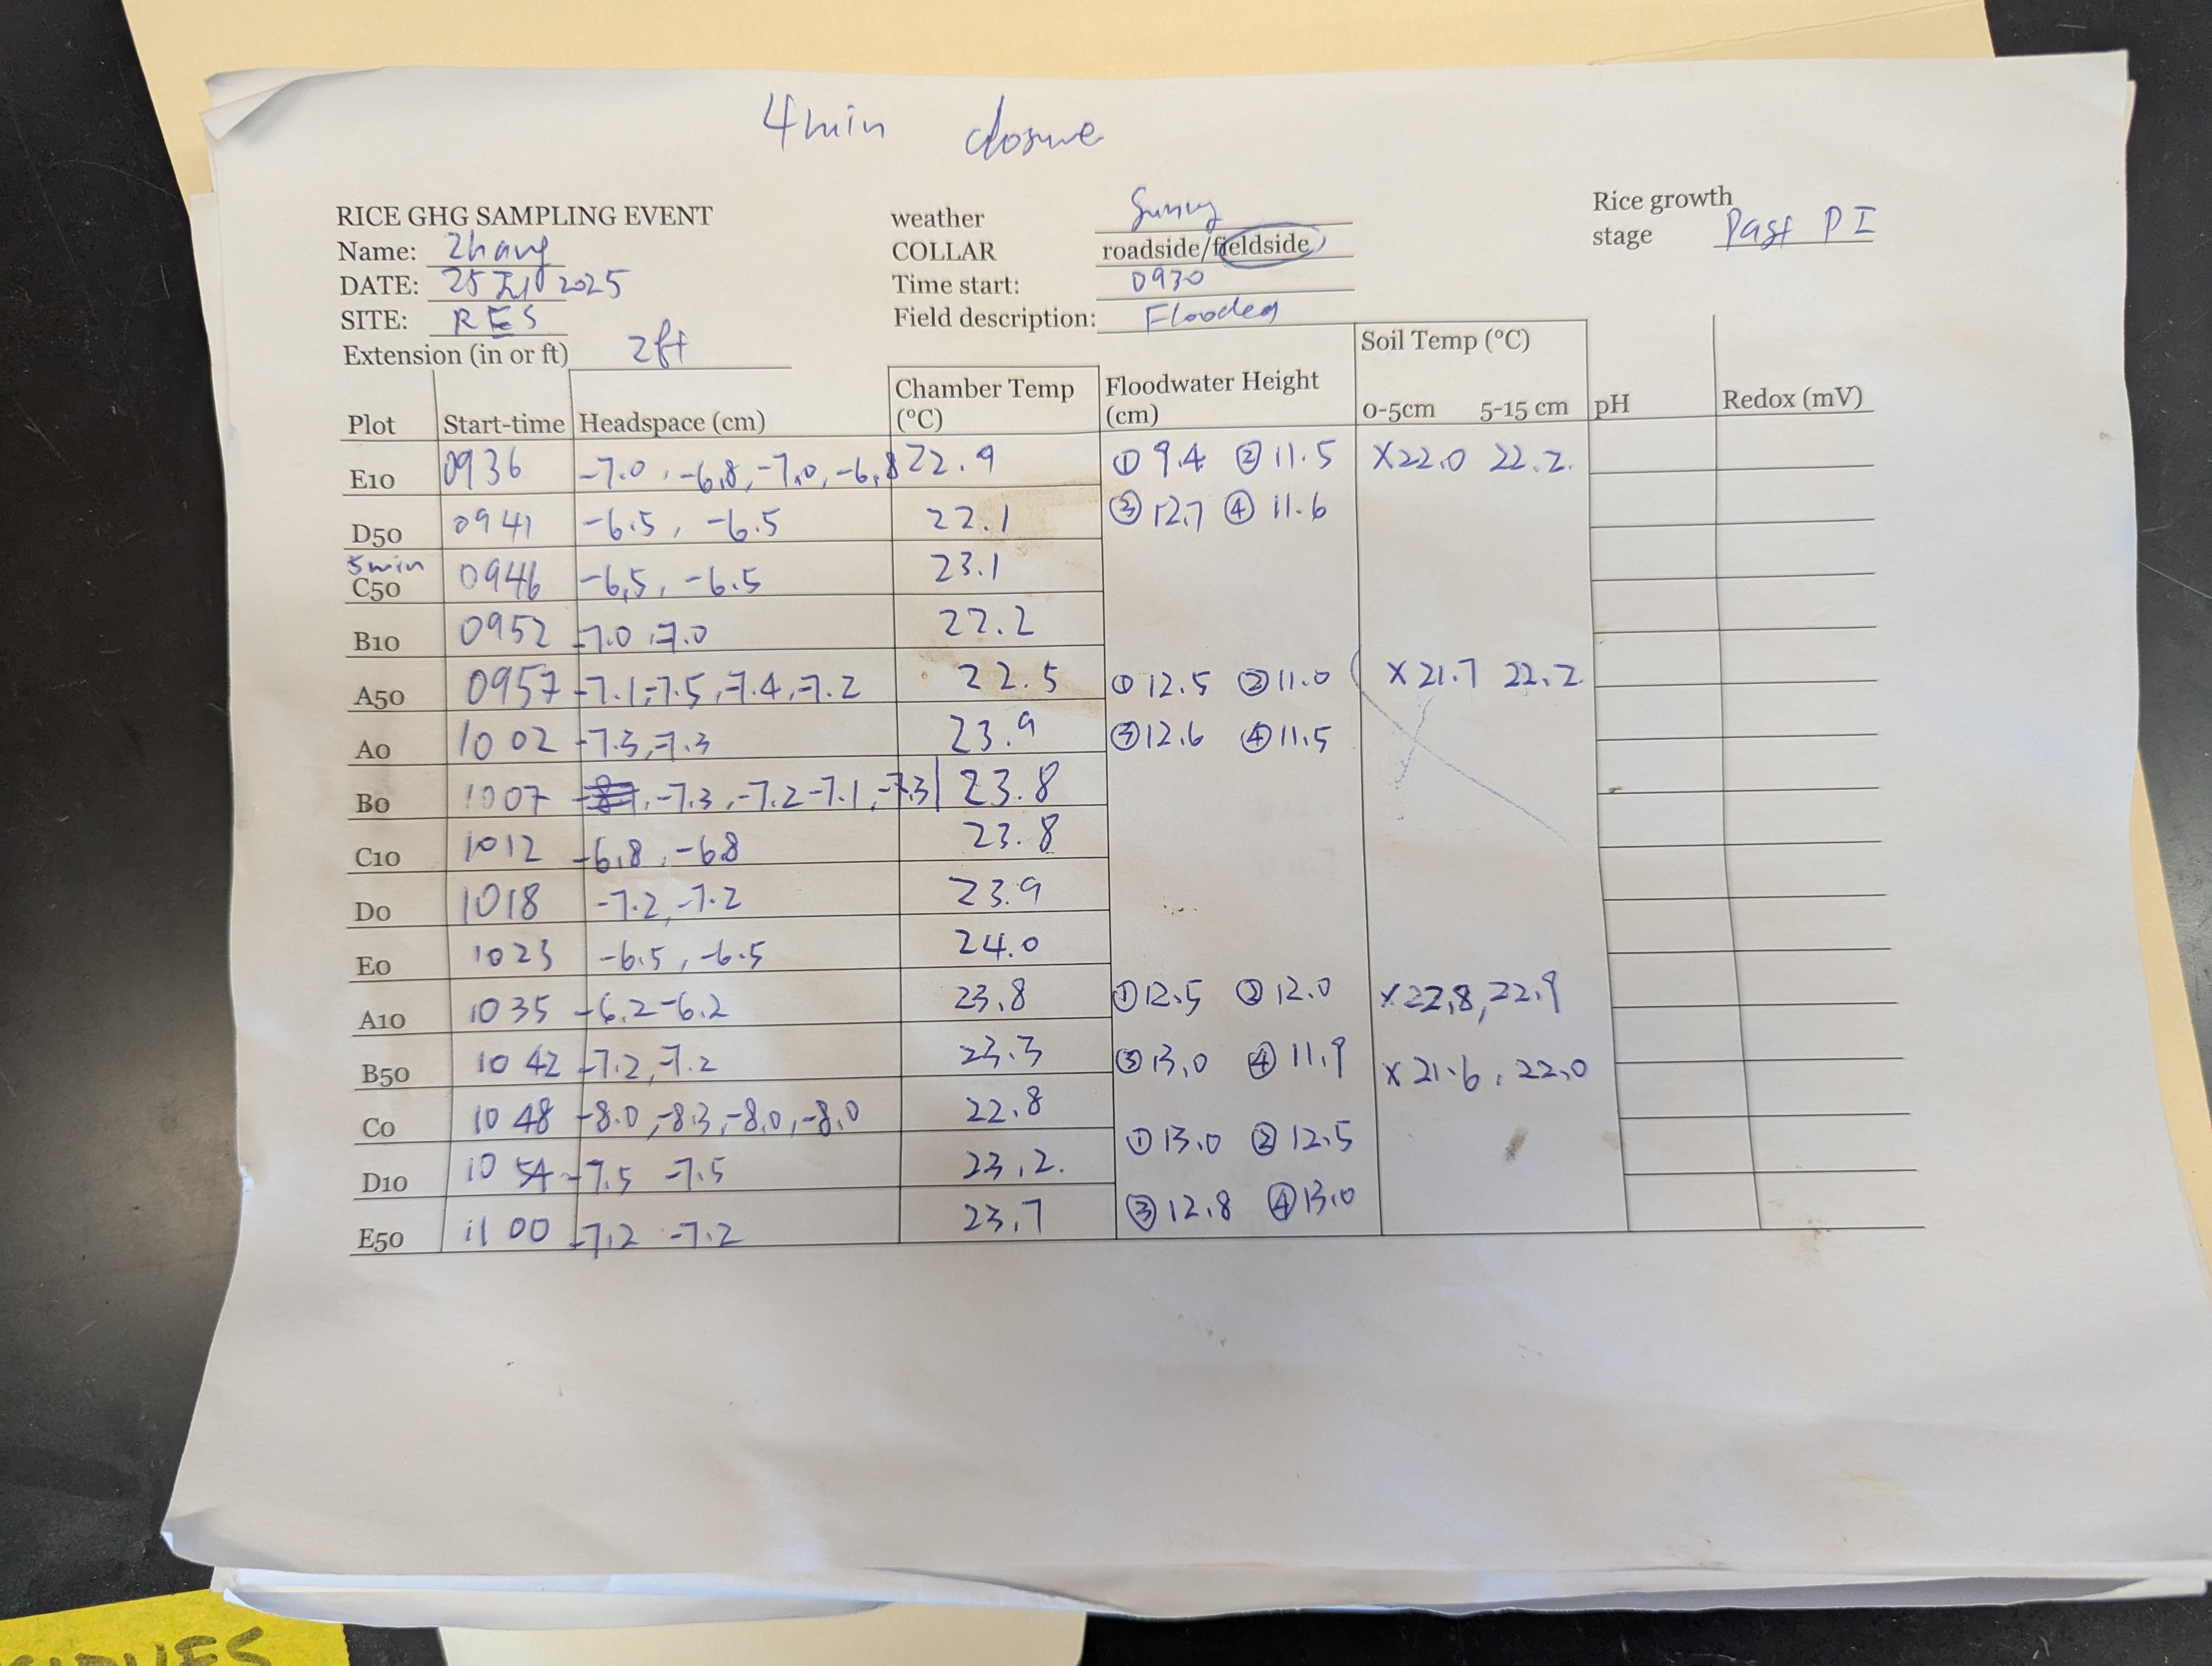 4min closure
RICE GHG SAMPLING EVENT
Name: Zhang
DATE: 25 Jul 2025
SITE: RES
Extension (in or ft) 2ft
weather Sunny
COLLAR roadside/fieldside
Time start: 0930
Field description: Flooded
Rice growth stage Past PI
Soil Temp (°C)
Plot Start-time Headspace (cm) Chamber Temp (°C) Floodwater Height (cm) 0-5cm 5-15 cm pH Redox (mV)
E10 0936 -7.0, -6.8, -7.0, -6.8 22.9 ① 9.4 ② 11.5 X22.0 22.2
D50 0941 -6.5, -6.5 22.1 ③ 12.7 ④ 11.6
5min
C50 0946 -6.5, -6.5 23.1
B10 0952 -7.0, -7.0 22.2
A50 0957 -7.1, -7.5, -7.4, -7.2 22.5 ① 12.5 ② 11.0 X 21.7 22.2
A0 1002 -7.3, -7.3 23.9 ③ 12.6 ④ 11.5
B0 1007 -7.3, -7.2 -7.1, -7.3 23.8
C10 1012 -6.8, -6.8 23.8
D0 1018 -7.2, -7.2 23.9
E0 1023 -6.5, -6.5 24.0
A10 1035 -6.2 -6.2 23.8 ① 12.5 ② 12.0 X22.8, 22.9
B50 1042 -7.2, -7.2 23.3 ③ 13.0 ④ 11.9 X 21.6, 22.0
C0 1048 -8.0, -8.3, -8.0, -8.0 22.8
① 13.0 ② 12.5
D10 1054 -7.5 -7.5 23.2
E50 1100 -7.2 -7.2 23.7 ③ 12.8 ④ 13.0